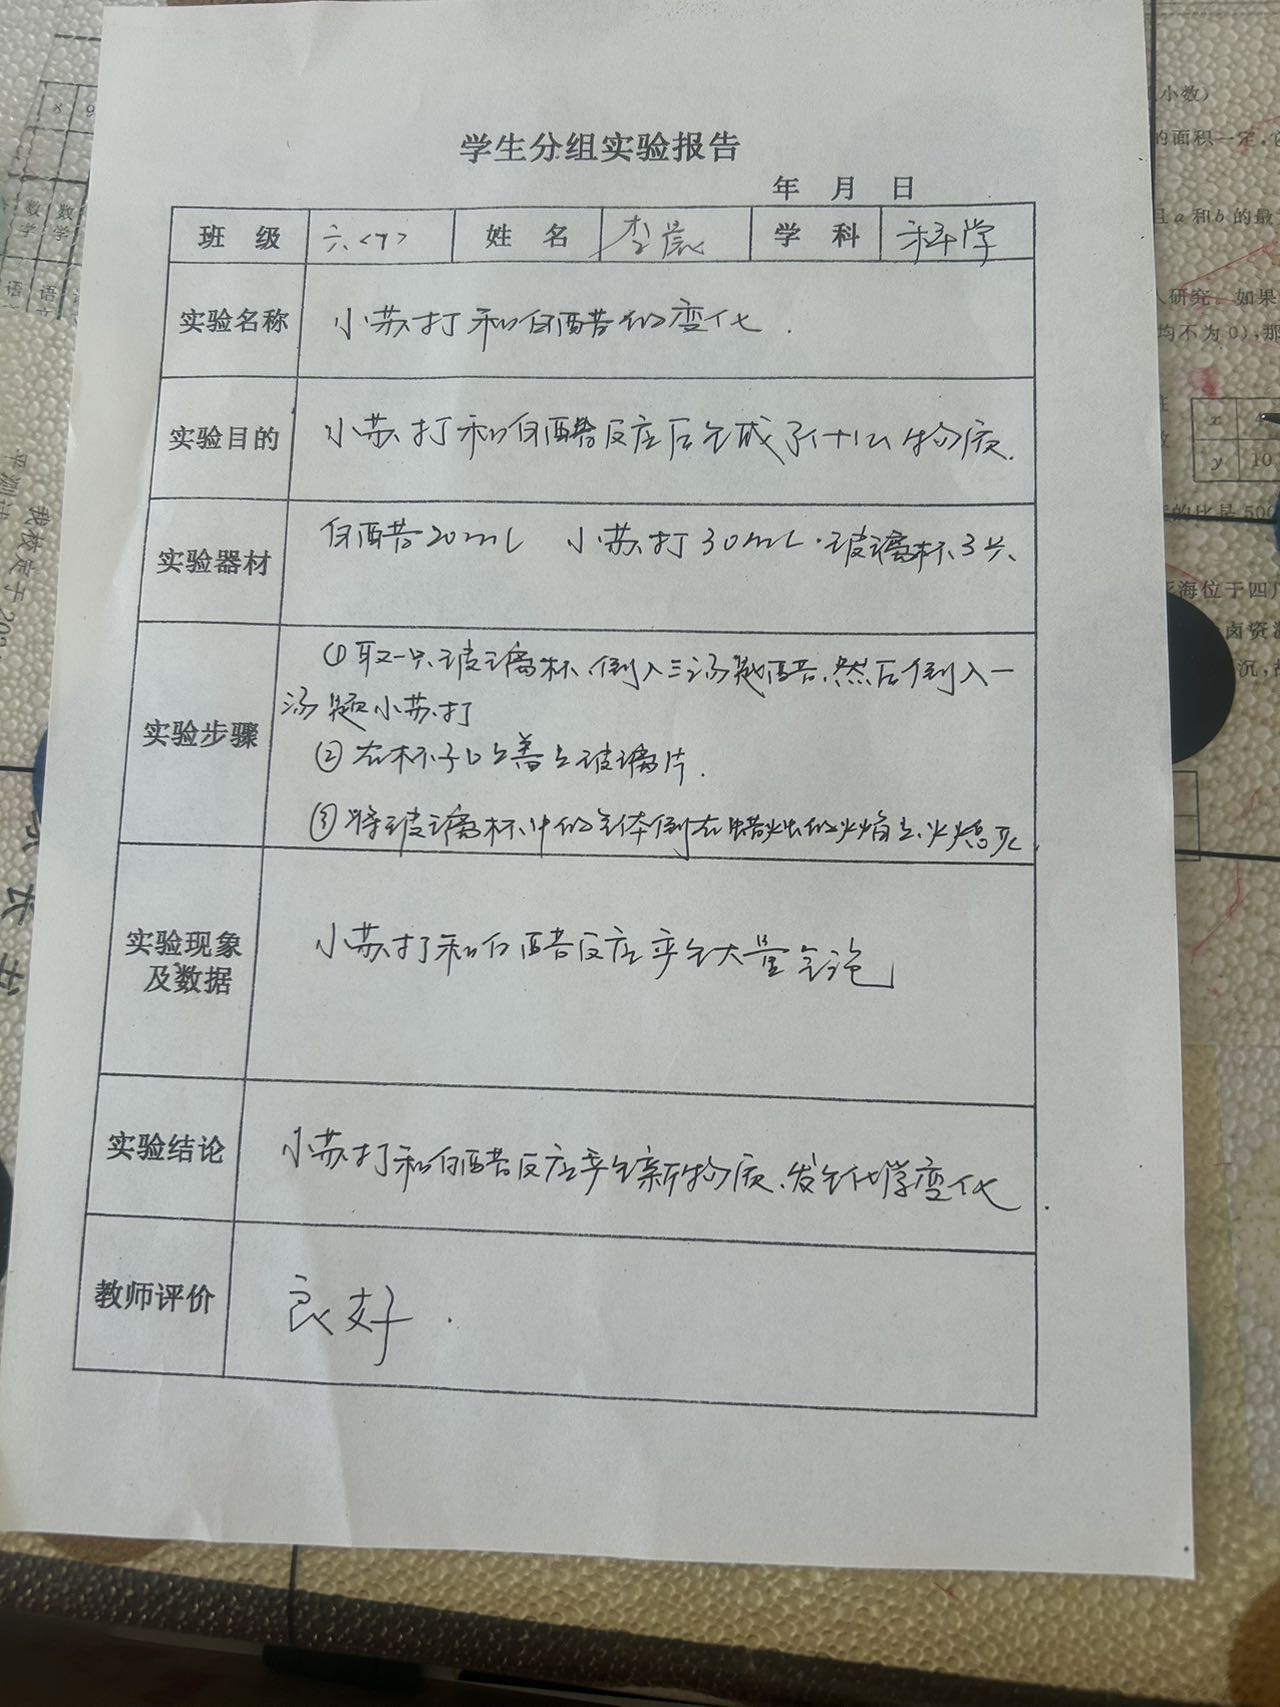 学生分组实验报告
年 月 日
班 级 六<7> 姓 名 李宸 学 科 科学
实验名称 小苏打和白醋的变化.
实验目的 小苏打和白醋反应后生成了什么物质.
实验器材 白醋20mL 小苏打30mL.玻璃杯3只、
实验步骤
①取一只玻璃杯,倒入三汤匙醋.然后倒入一
汤匙小苏打
②在杯子口上盖上玻璃片.
③将玻璃杯中的气体倒在蜡烛的火焰上、火熄灭.
实验现象
及数据
小苏打和白醋反应产生大量气泡
实验结论 小苏打和白醋反应产生新物质、发生化学变化.
教师评价 良好.
小数)
的面积一定,
且a和b的最
人研究。如果
均不为0),那
x
y 10
的比是500
海位于四
卤资
沉,
8 9
数学 数学
语 语
我校定于